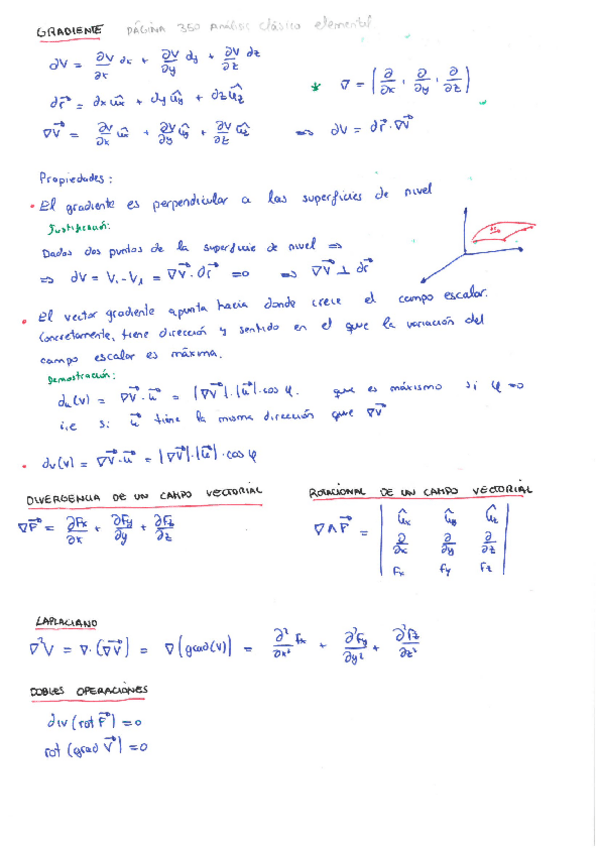 GRADIENTE PÁGINA 350 Análisis clásico elemental
∂V = ∂V/∂x dx + ∂V/∂y dy + ∂V/∂z dz
∂r⃗ = ∂x ûx + dy ûy + ∂z ûz * ∇ = (∂/∂x, ∂/∂y, ∂/∂z)
∇V⃗ = ∂V/∂x ûx + ∂V/∂y ûy + ∂V/∂z ûz ⇒ ∂V = ∂r⃗ · ∇V⃗
Propiedades:
• El gradiente es perpendicular a las superficies de nivel
Justificación:
Dados dos puntos de la superficie de nivel ⇒
⇒ ∂V = V₁ - V₁ = ∇V⃗ · ∂r⃗ = 0 ⇒ ∇V⃗ ⊥ ∂r⃗
• El vector gradiente apunta hacia donde crece el campo escalar.
Concretamente, tiene dirección y sentido en el que la variación del
campo escalar es máxima.
Demostración:
du(V) = ∇V⃗ · u⃗ = |∇V⃗| · |u⃗| · cos φ. que es máxismo si φ = 0
i.e si u⃗ tiene la misma dirección que ∇V⃗
• du(V) = ∇V⃗ · u⃗ = |∇V⃗| · |u⃗| · cos φ
DIVERGENCIA DE UN CAMPO VECTORIAL
∇F⃗ = ∂Fx/∂x + ∂Fy/∂y + ∂Fz/∂z
ROTACIONAL DE UN CAMPO VECTORIAL
∇∧F⃗ = | ûx ûy ûz |
| ∂/∂x ∂/∂y ∂/∂z |
| Fx Fy Fz |
LAPLACIANO
∇²V = ∇·(∇V⃗) = ∇(grad(V)) = ∂²Fx/∂x² + ∂²Fy/∂y² + ∂²Fz/∂z²
DOBLES OPERACIONES
div (rot F⃗) = 0
rot (grad V⃗) = 0